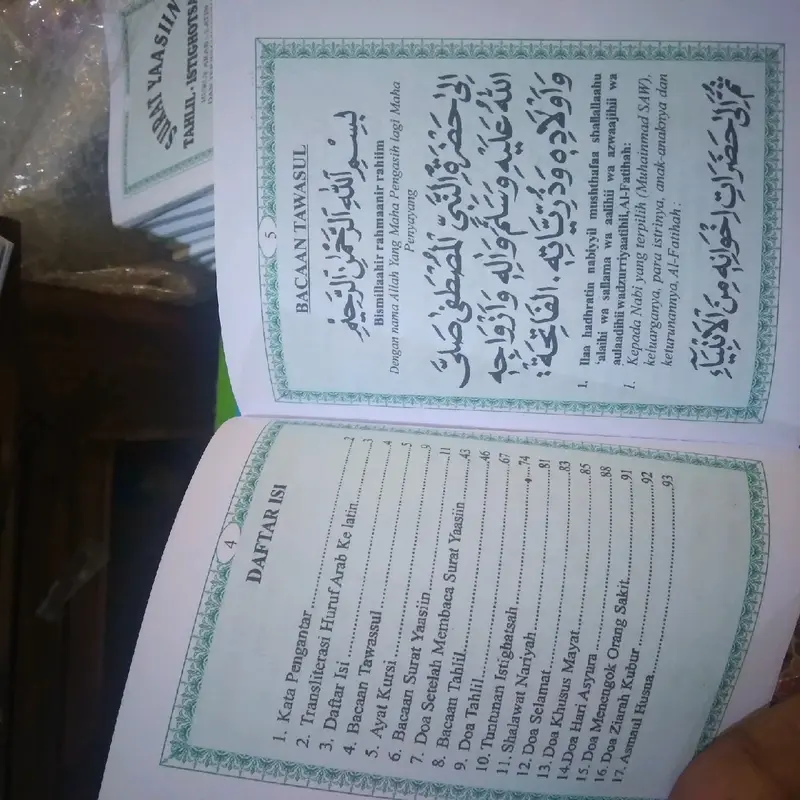 SURAT YAASIIN
TAHLIL - ISTIGHOTSA
4
DAFTAR ISI
1. Kata Pengantar..........2
2. Transliterasi Huruf Arab Ke latin..........3
3. Daftar Isi..........4
4. Bacaan Tawassul..........5
5. Ayat Kursi..........9
6. Bacaan Surat Yaasiin..........11
7. Doa Setelah Membaca Surat Yaasiin..........43
8. Bacaan Tahlil..........46
9. Doa Tahlil..........67
10. Tuntunan Istighatsah..........74
11. Shalawat Nariyah..........81
12. Doa Selamat..........83
13. Doa Khusus Mayat..........85
14.Doa Hari Asyura..........88
15. Doa Menengok Orang Sakit..........91
16. Doa Ziarah Kubur..........92
17. Asmaul Husna..........93
5
BACAAN TAWASUL
بِسْمِ اللهِ الرَّحْمٰنِ الرَّحِيْمِ
Bismillaahir rahmaanir rahiim
Dengan nama Allah Yang Maha Pengasih lagi Maha
Penyayang
اِلٰى حَضْرَةِ النَّبِيِّ الْمُصْطَفٰى صَلَّى
اللهُ عَلَيْهِ وَسَلَّمَ وَاٰلِهِ وَاَزْوَاجِهِ
وَاَوْلَادِهِ وَذُرِّيَّاتِهِ. الْفَاتِحَةُ:
1. Ilaa hadhratin nabiyyil mushthafaa shallallaahu
'alaihi wa sallama wa aalihii wa azwaajihii wa
aulaadihii wadzurriyaatihii, Al-Fatihah:
1. Kepada Nabi yang terpilih (Muhammad SAW),
keluarganya, para istrinya, anak-anaknya dan
keturunannya, Al-Fatihah :
ثُمَّ اِلٰى حَضَرَاتِ اِخْوَانِهِ مِنَ الْاَنْبِيَاءِ